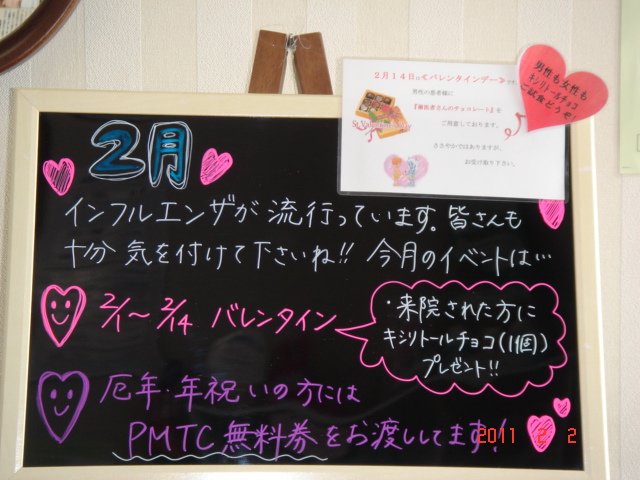 2月14日は≪バレンタインデー≫です。
男性の患者様に
『歯医者さんのチョコレート』を
ご用意しております。
ささやかではありますが、
お受け取り下さい。
St.Valentine's Day
男性も女性も
キシリトールチョコ
ご試食どうぞ！
2月
インフルエンザが流行っています。皆さんも
十分気を付けて下さいね!! 今月のイベントは…
2/1〜2/14 バレンタイン
・来院された方に
キシリトールチョコ(1個)
プレゼント!!
厄年・年祝いの方には
PMTC無料券をお渡ししてます！
2011 2 2